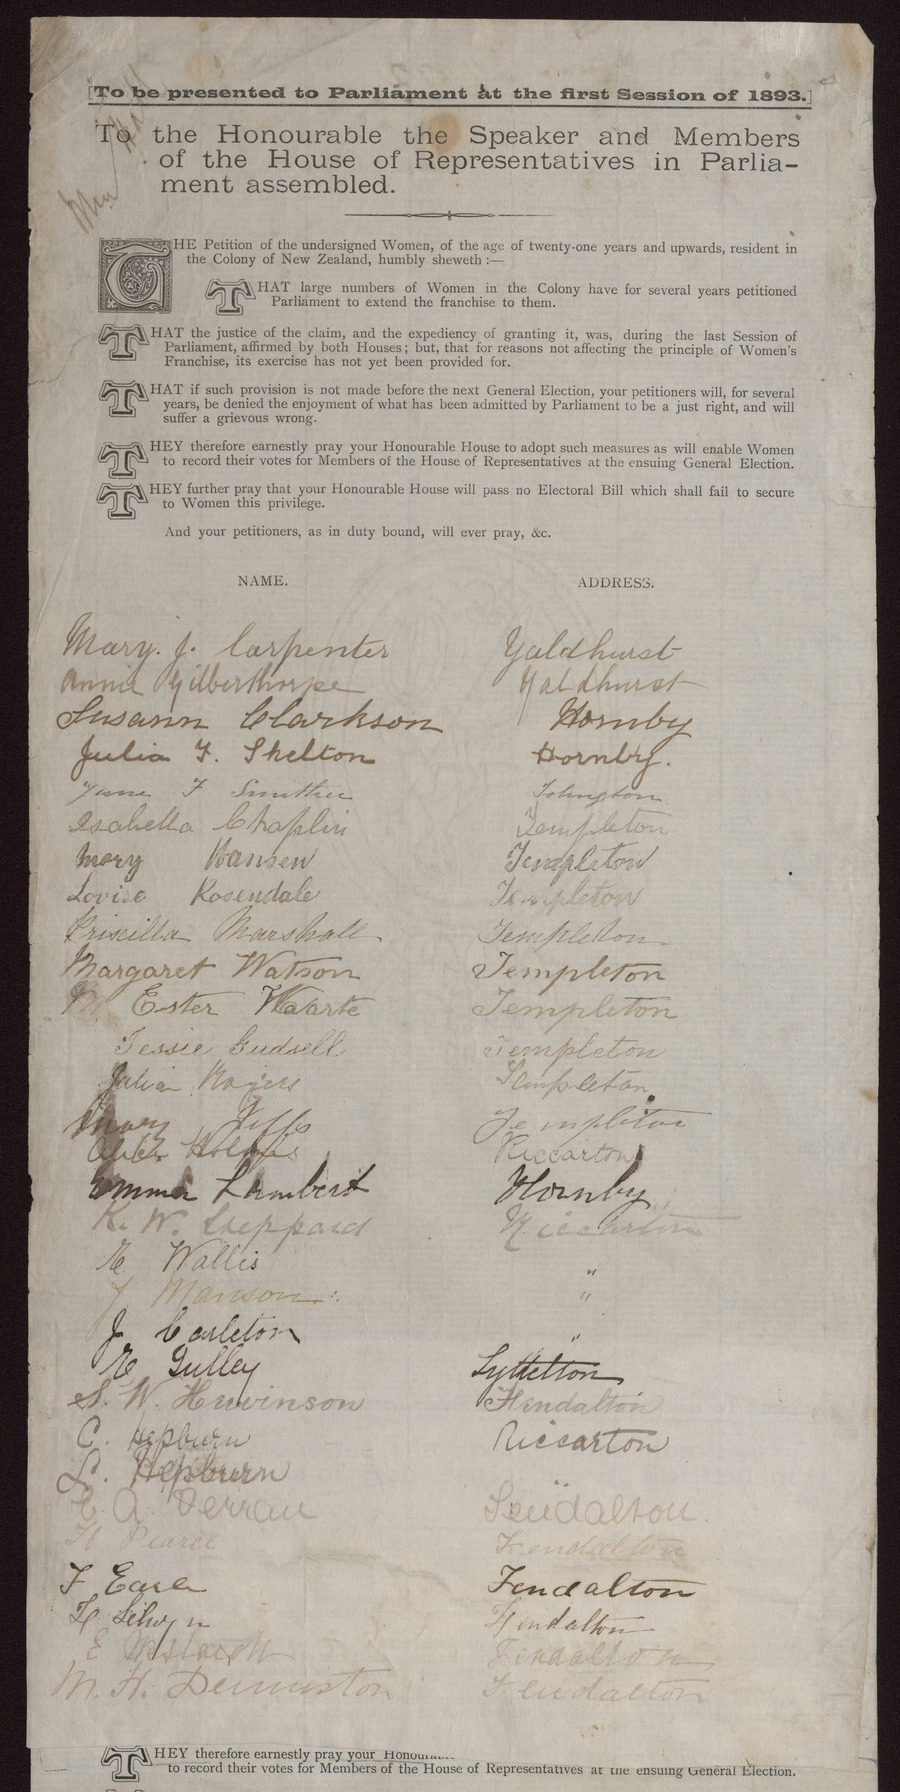 [To be presented to Parliament at the first Session of 1893.]
To the Honourable the Speaker and Members
of the House of Representatives in Parlia-
ment assembled.
THE Petition of the undersigned Women, of the age of twenty-one years and upwards, resident in
the Colony of New Zealand, humbly sheweth :—
THAT large numbers of Women in the Colony have for several years petitioned
Parliament to extend the franchise to them.
THAT the justice of the claim, and the expediency of granting it, was, during the last Session of
Parliament, affirmed by both Houses; but, that for reasons not affecting the principle of Women's
Franchise, its exercise has not yet been provided for.
THAT if such provision is not made before the next General Election, your petitioners will, for several
years, be denied the enjoyment of what has been admitted by Parliament to be a just right, and will
suffer a grievous wrong.
THEY therefore earnestly pray your Honourable House to adopt such measures as will enable Women
to record their votes for Members of the House of Representatives at the ensuing General Election.
THEY further pray that your Honourable House will pass no Electoral Bill which shall fail to secure
to Women this privilege.
And your petitioners, as in duty bound, will ever pray, &c.
NAME. ADDRESS.
Mary. J. Carpenter Yaldhurst
Annie Gilberthorpe Yaldhurst
Susann Clarkson Hornby
Julia F. Shelton Hornby.
Jane F
Isabella Chaplin Templeton
Mary Hansen Templeton
Lovise Rosendale Templeton
Priscilla Marshall Templeton
Margaret Watson Templeton
M Ester Templeton
Jessie Gudsell Templeton
Julia Rogers Templeton
Mary Templeton
Holmes Riccarton
Emma Lambert Hornby
K. W. Sheppard Riccarton
E Wallis "
J Manson "
J Carleton "
E Gulley Lyttelton
S. W. Fendalton
C. Hepburn Riccarton
L. Hepburn "
E A Ferrau Fendalton
H Pearce Fendalton
F Earle Fendalton
H Selwyn Fendalton
E Fendalton
M. H. Denniston Fendalton
THEY therefore earnestly pray your Honoura
to record their votes for Members of the House of Representatives at the ensuing General Election.